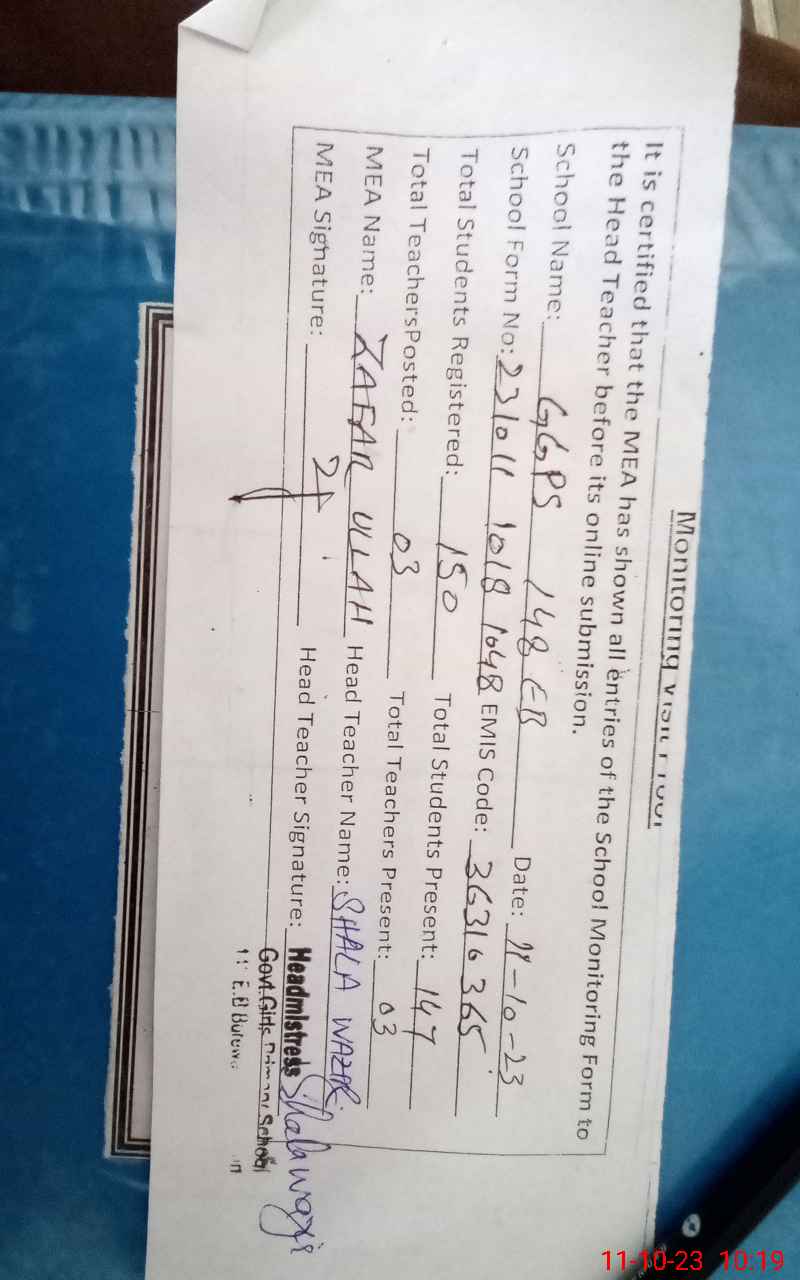 Monitoring Visit Proof
It is certified that the MEA has shown all entries of the School Monitoring Form to
the Head Teacher before its online submission.
School Name: GGPS 148 EB Date: 11-10-23
School Form No: 231011 1018 1048 EMIS Code: 36310365
Total Students Registered: 150 Total Students Present: 147
Total TeachersPosted: 03 Total Teachers Present: 03
MEA Name: ZAFAR ULLAH Head Teacher Name: SHALA WAZIR
MEA Signature: Head Teacher Signature: Headmistress
Govt.Girls Primary School
E.B Burewa
11-10-23 10:19